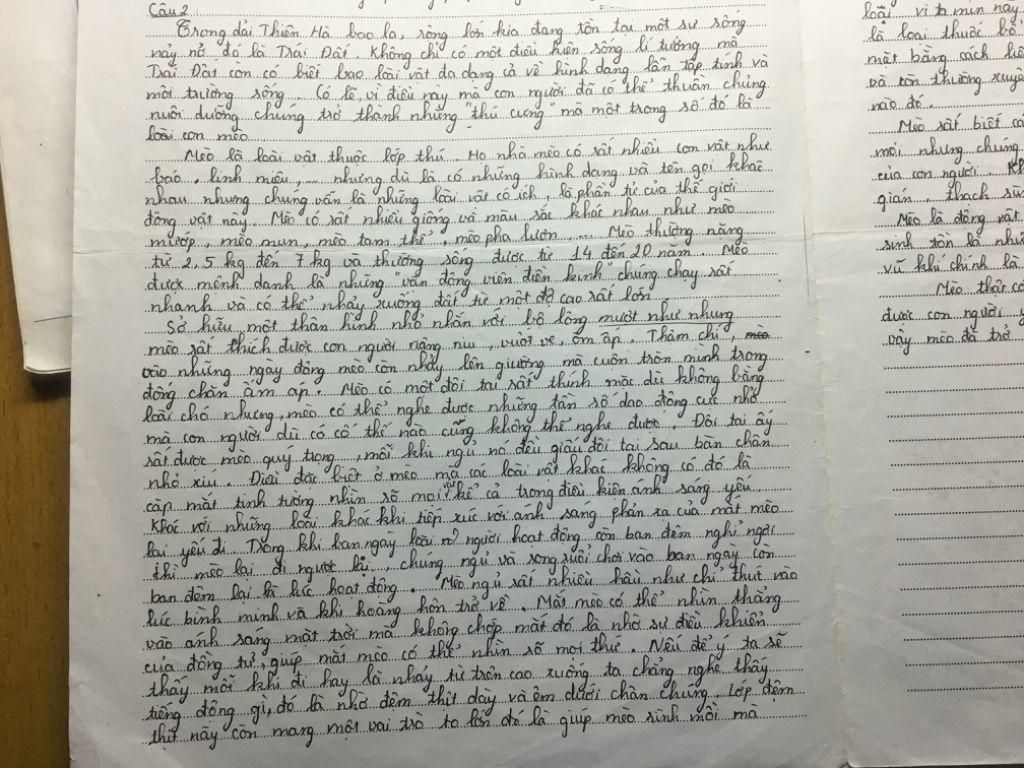 Câu 2
Trong dải Thiên Hà bao la, rộng lớn kia đang tồn tại một sự sống
nảy nở, đó là Trái Đất. Không chỉ có một điều kiện sống lí tưởng mà
Trái Đất còn có biết bao loài vật đa dạng cả về hình dạng lẫn tập tính và
môi trường sống. Có lẽ, vì điều này mà con người đã có thể thuần chủng
nuôi dưỡng chúng trở thành những "thú cưng" mà một trong số đó là
loài con mèo.
Mèo là loài vật thuộc lớp thú. Họ nhà mèo có rất nhiều con vật như
báo, linh miêu, ... nhưng dù là có những hình dạng và tên gọi khác
nhau nhưng chúng vẫn là những loài vật có ích, là phần tử của thế giới
động vật này. Mèo có rất nhiều giống và màu sắc khác nhau như mèo
mướp, mèo mun, mèo tam thể, mèo pha lươn, ... Mèo thường nặng
từ 2,5 kg đến 7 kg và thường sống được từ 14 đến 20 năm. Mèo
được mệnh danh là những "vận động viên điền kinh" chúng chạy rất
nhanh và có thể nhảy xuống đất từ một độ cao rất lớn.
Sở hữu một thân hình nhỏ nhắn với bộ lông mượt như nhung
mèo rất thích được con người nâng niu, vuốt ve, ôm ấp. Thậm chí, mèo
vào những ngày đông mèo còn nhảy lên giường mà cuộn tròn mình trong
đống chăn ấm áp. Mèo có một đôi tai rất thính mặc dù không bằng
loài chó nhưng mèo có thể nghe được những tần số dao động cực nhỏ
mà con người dù có cố thế nào cũng không thể nghe được. Đôi tai ấy
rất được mèo quý trọng, mỗi khi ngủ nó đều giấu đôi tai sau bàn chân
nhỏ xíu. Điều đặc biệt ở mèo mà các loài vật khác không có đó là
cặp mắt tinh tường nhìn rõ mọi thứ kể cả trong điều kiện ánh sáng yếu.
Khác với những loài khác khi tiếp xúc với ánh sáng phản xạ của mắt mèo
lại yếu đi. Trong khi ban ngày loài người hoạt động còn ban đêm nghỉ ngơi
thì mèo lại đi ngược lại, chúng ngủ và rong ruổi chơi vào ban ngày còn
ban đêm lại là lúc hoạt động. Mèo ngủ rất nhiều hầu như chỉ thức vào
lúc bình minh và khi hoàng hôn trở về. Mắt mèo có thể nhìn thẳng
vào ánh sáng mặt trời mà không chớp mắt đó là nhờ sự điều khiển
của đồng tử, giúp mắt mèo có thể nhìn rõ mọi thứ. Nếu để ý ta sẽ
thấy mỗi khi đi hay là nhảy từ trên cao xuống ta chẳng nghe thấy
tiếng động gì, đó là nhờ đệm thịt dày và êm dưới chân chúng. Lớp đệm
thịt này còn mang một vai trò to lớn đó là giúp mèo rình mồi mà
loại vitamin này
là loại thuốc bổ
mặt bằng cách liế
và tổn thương xuyê
nào đó.
Mèo rất biết cá
mọi nhưng chúng
của con người. Kh
gián, thạch sù
Mèo là động vật
sinh tồn là nhữ
vũ khí chính là
Mèo thật có
được con người y
vậy mèo đã trở